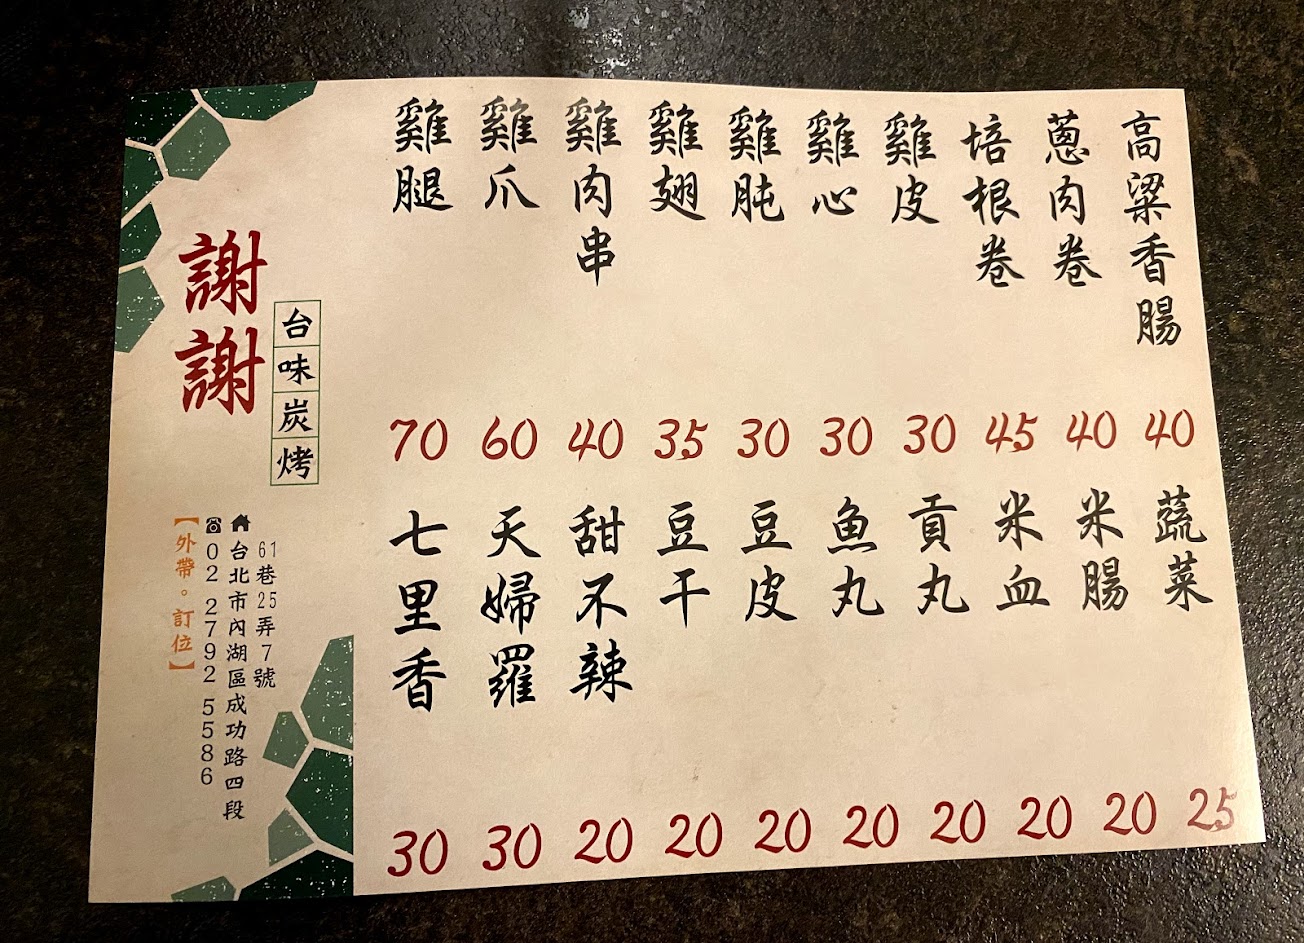 謝謝
台味炭烤
【外帶。訂位】
☎02 2792 5586
台北市內湖區成功路四段
61巷25弄7號
雞腿
雞爪
雞肉串
雞翅
雞肫
雞心
雞皮
培根卷
蔥肉卷
高粱香腸
70 60 40 35 30 30 30 45 40 40
七里香
天婦羅
甜不辣
豆干
豆皮
魚丸
貢丸
米血
米腸
蔬菜
30 30 20 20 20 20 20 20 20 25